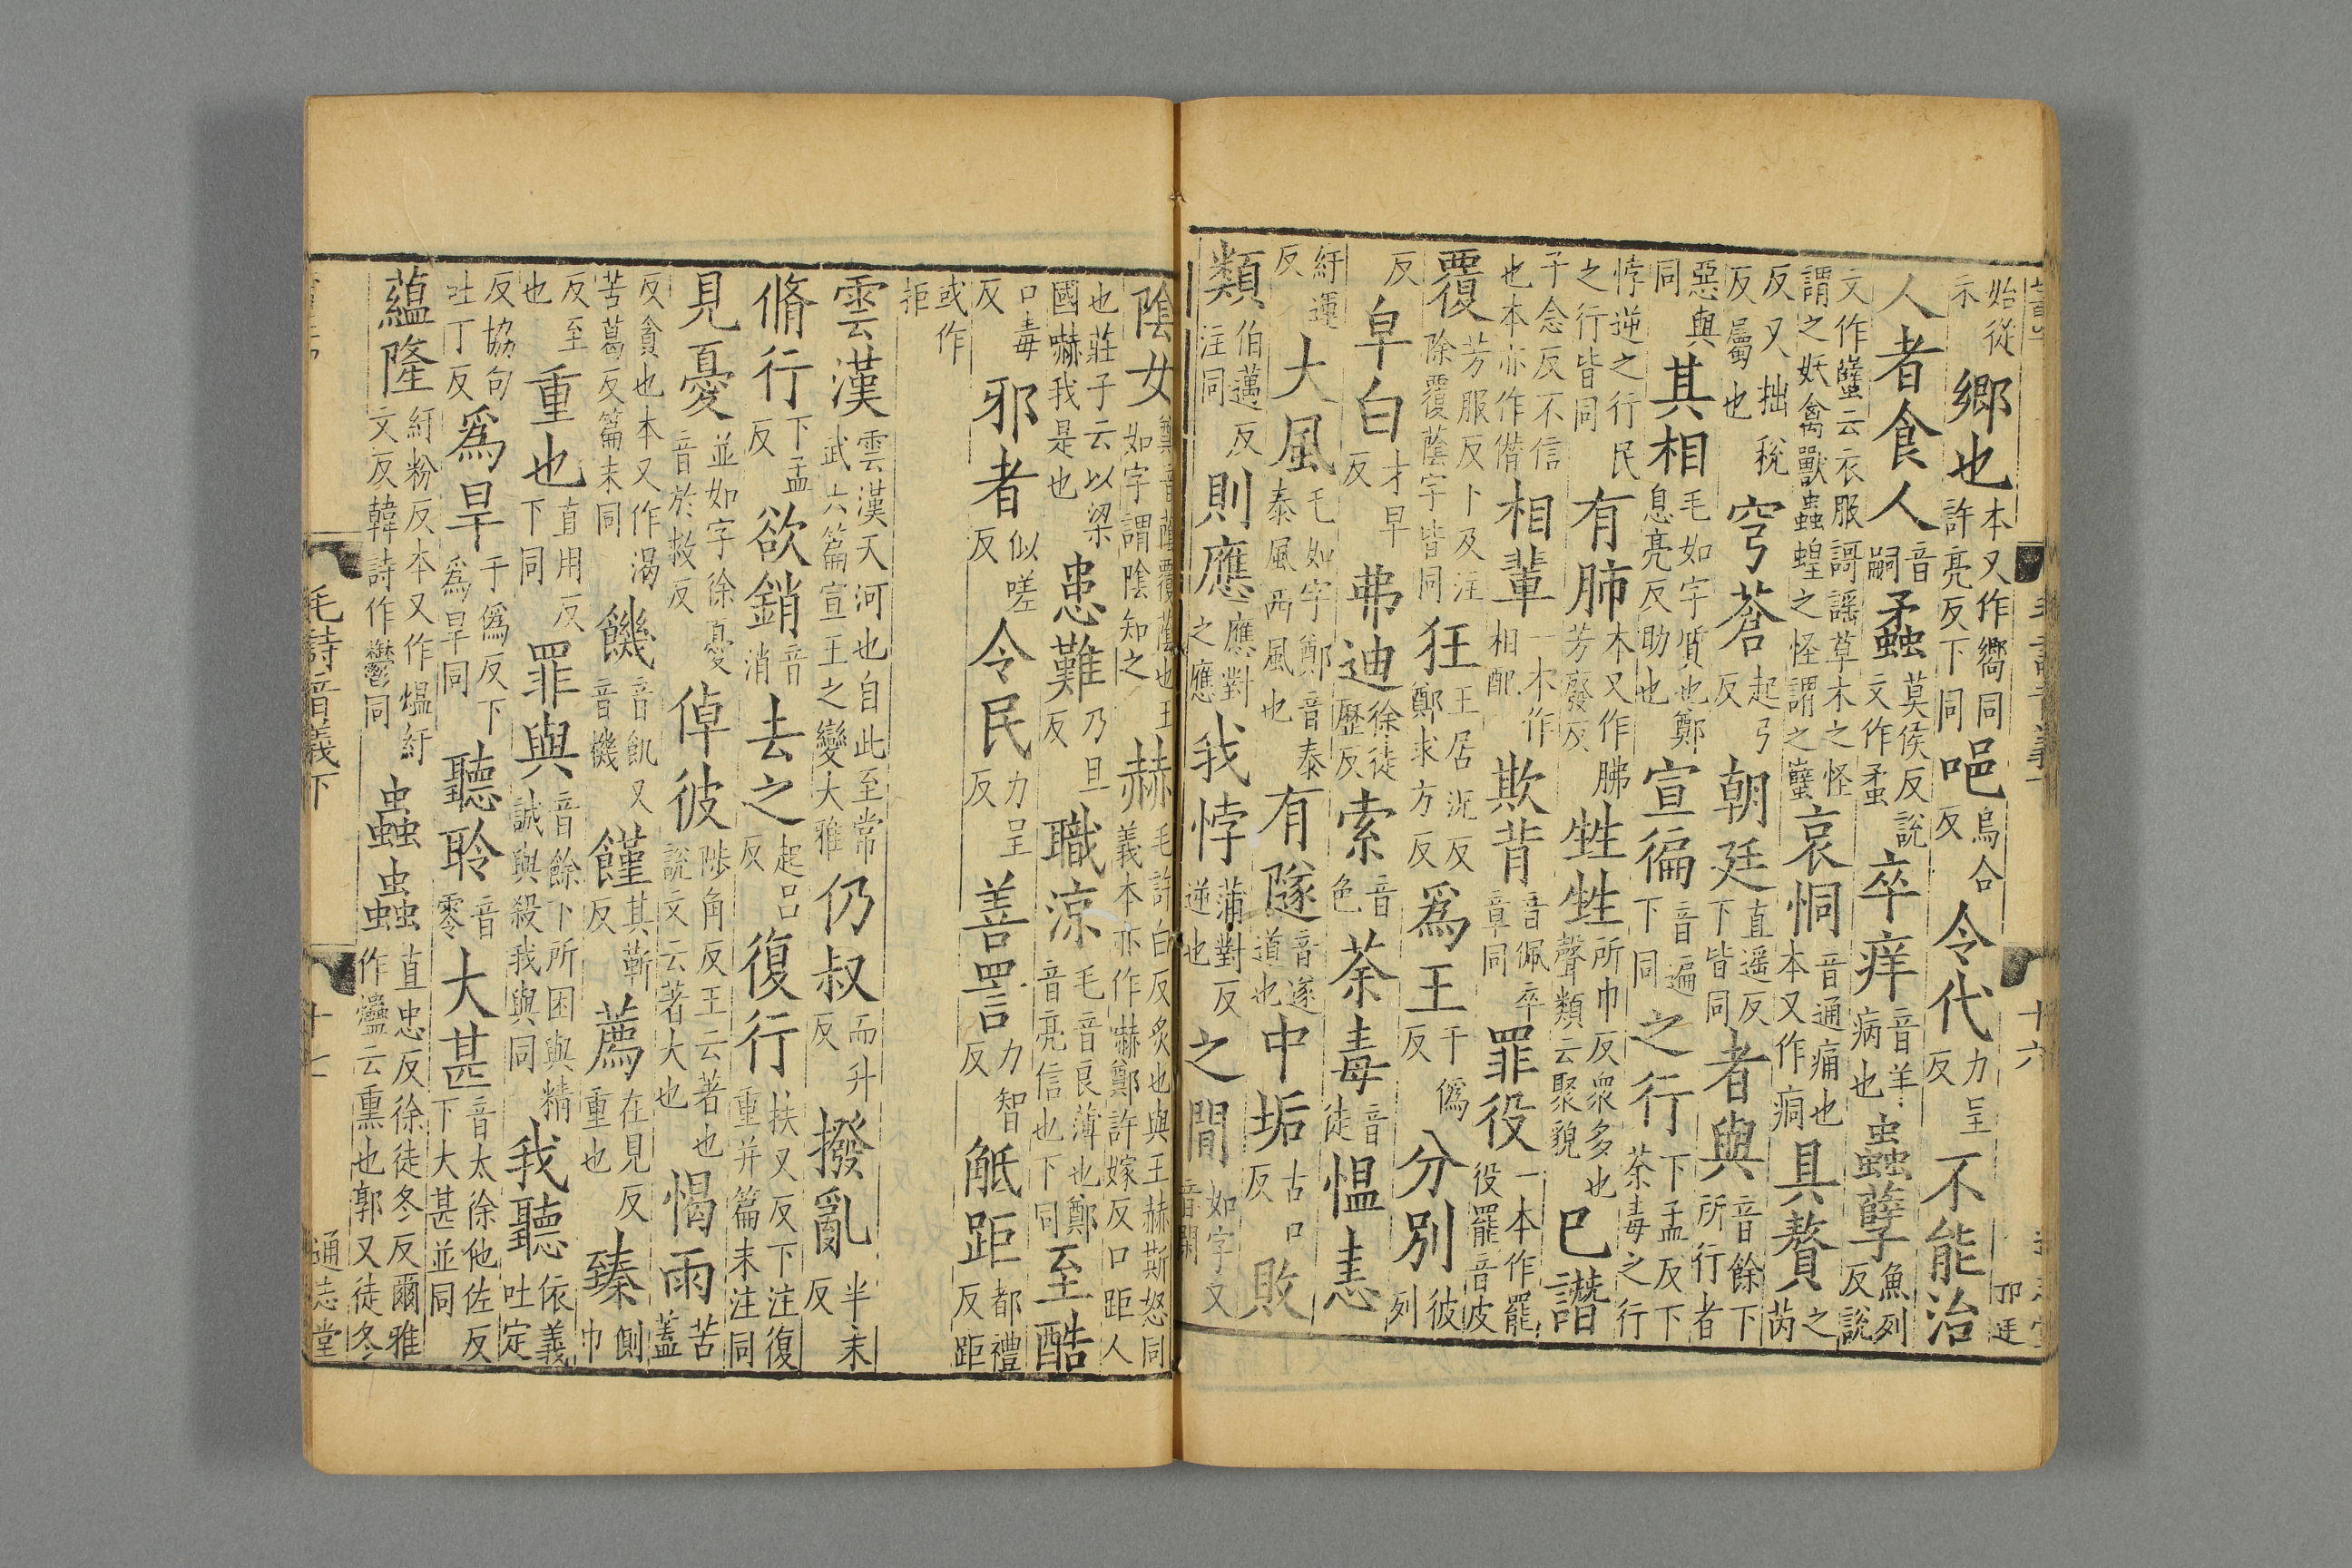 始從示鄉也本又作嚮同許亮反下同唈烏合反令代力呈反不能治
人者食人音嗣蟊莫侯反說文作蝥卒痒音羊病也蟲孽魚列反說
文作蠥云衣服謌謡草木之怪謂之妖禽獸蟲蝗之怪謂之蠥哀恫音通痛也本又作痌具贅之芮
反又拙稅反屬也穹蒼起弓反朝廷直遥反下皆同者與音餘下所行者
惡與同其相毛如字質也鄭息亮反助也宣徧音遍下同之行下孟反下荼毒之行
悖逆之行民之行皆同有肺本又作胇芳廢反甡甡所巾反衆多也聲類云聚貌巳譖
子念反不信也本亦作僭相輩一本作相配欺背音佩卒章同罪役一本作罷役罷音皮
覆芳服反卜及注除覆蔭字皆同狂王居況反鄭求方反爲王于僞反分別彼列
反皁白才早反弗迪徐徒歷反索音色荼毒音徒愠恚
紆運反大風毛如字鄭音泰泰風西風也有隧音遂道也中垢古口反敗
類伯邁反注同則應應對之應我悖蒲對反逆也之閒如字又音閑
十六
陰女鄭音蔭覆蔭也王如字謂陰知之赫毛許白反炙也與王赫斯怒同義本亦作嚇鄭許嫁反口距人
也莊子云以梁國嚇我是也患難乃旦反職凉毛音良薄也鄭音亮信也下同至酷
口毒反邪者似嗟反令民力呈反善詈力智反觝距都禮反距
或作拒
雲漢雲漢天河也自此至常武六篇宣王之變大雅仍叔而升反撥亂半末反
脩行下孟反欲銷音消去之起呂反復行扶又反下注復重并篇末注同
見憂並如字徐憂音於救反倬彼陟角反王云著也說文云著大也愒雨苦蓋
反貪也本又作渴苦葛反篇末同饑音飢又音機饉其靳反薦在見反重也臻側巾
反至也重也直用反下同罪與音餘下所困與精誠與殺我與同我聽依義吐定
反協句吐丁反爲旱于僞反下爲旱同聽聆音零大甚音太徐他佐反下大甚並同
蘊隆紆粉反本又作熅紆文反韓詩作鬱同蟲蟲直忠反徐徒冬反爾雅作爞云熏也郭又徒冬
毛詩音義下
十七
通志堂